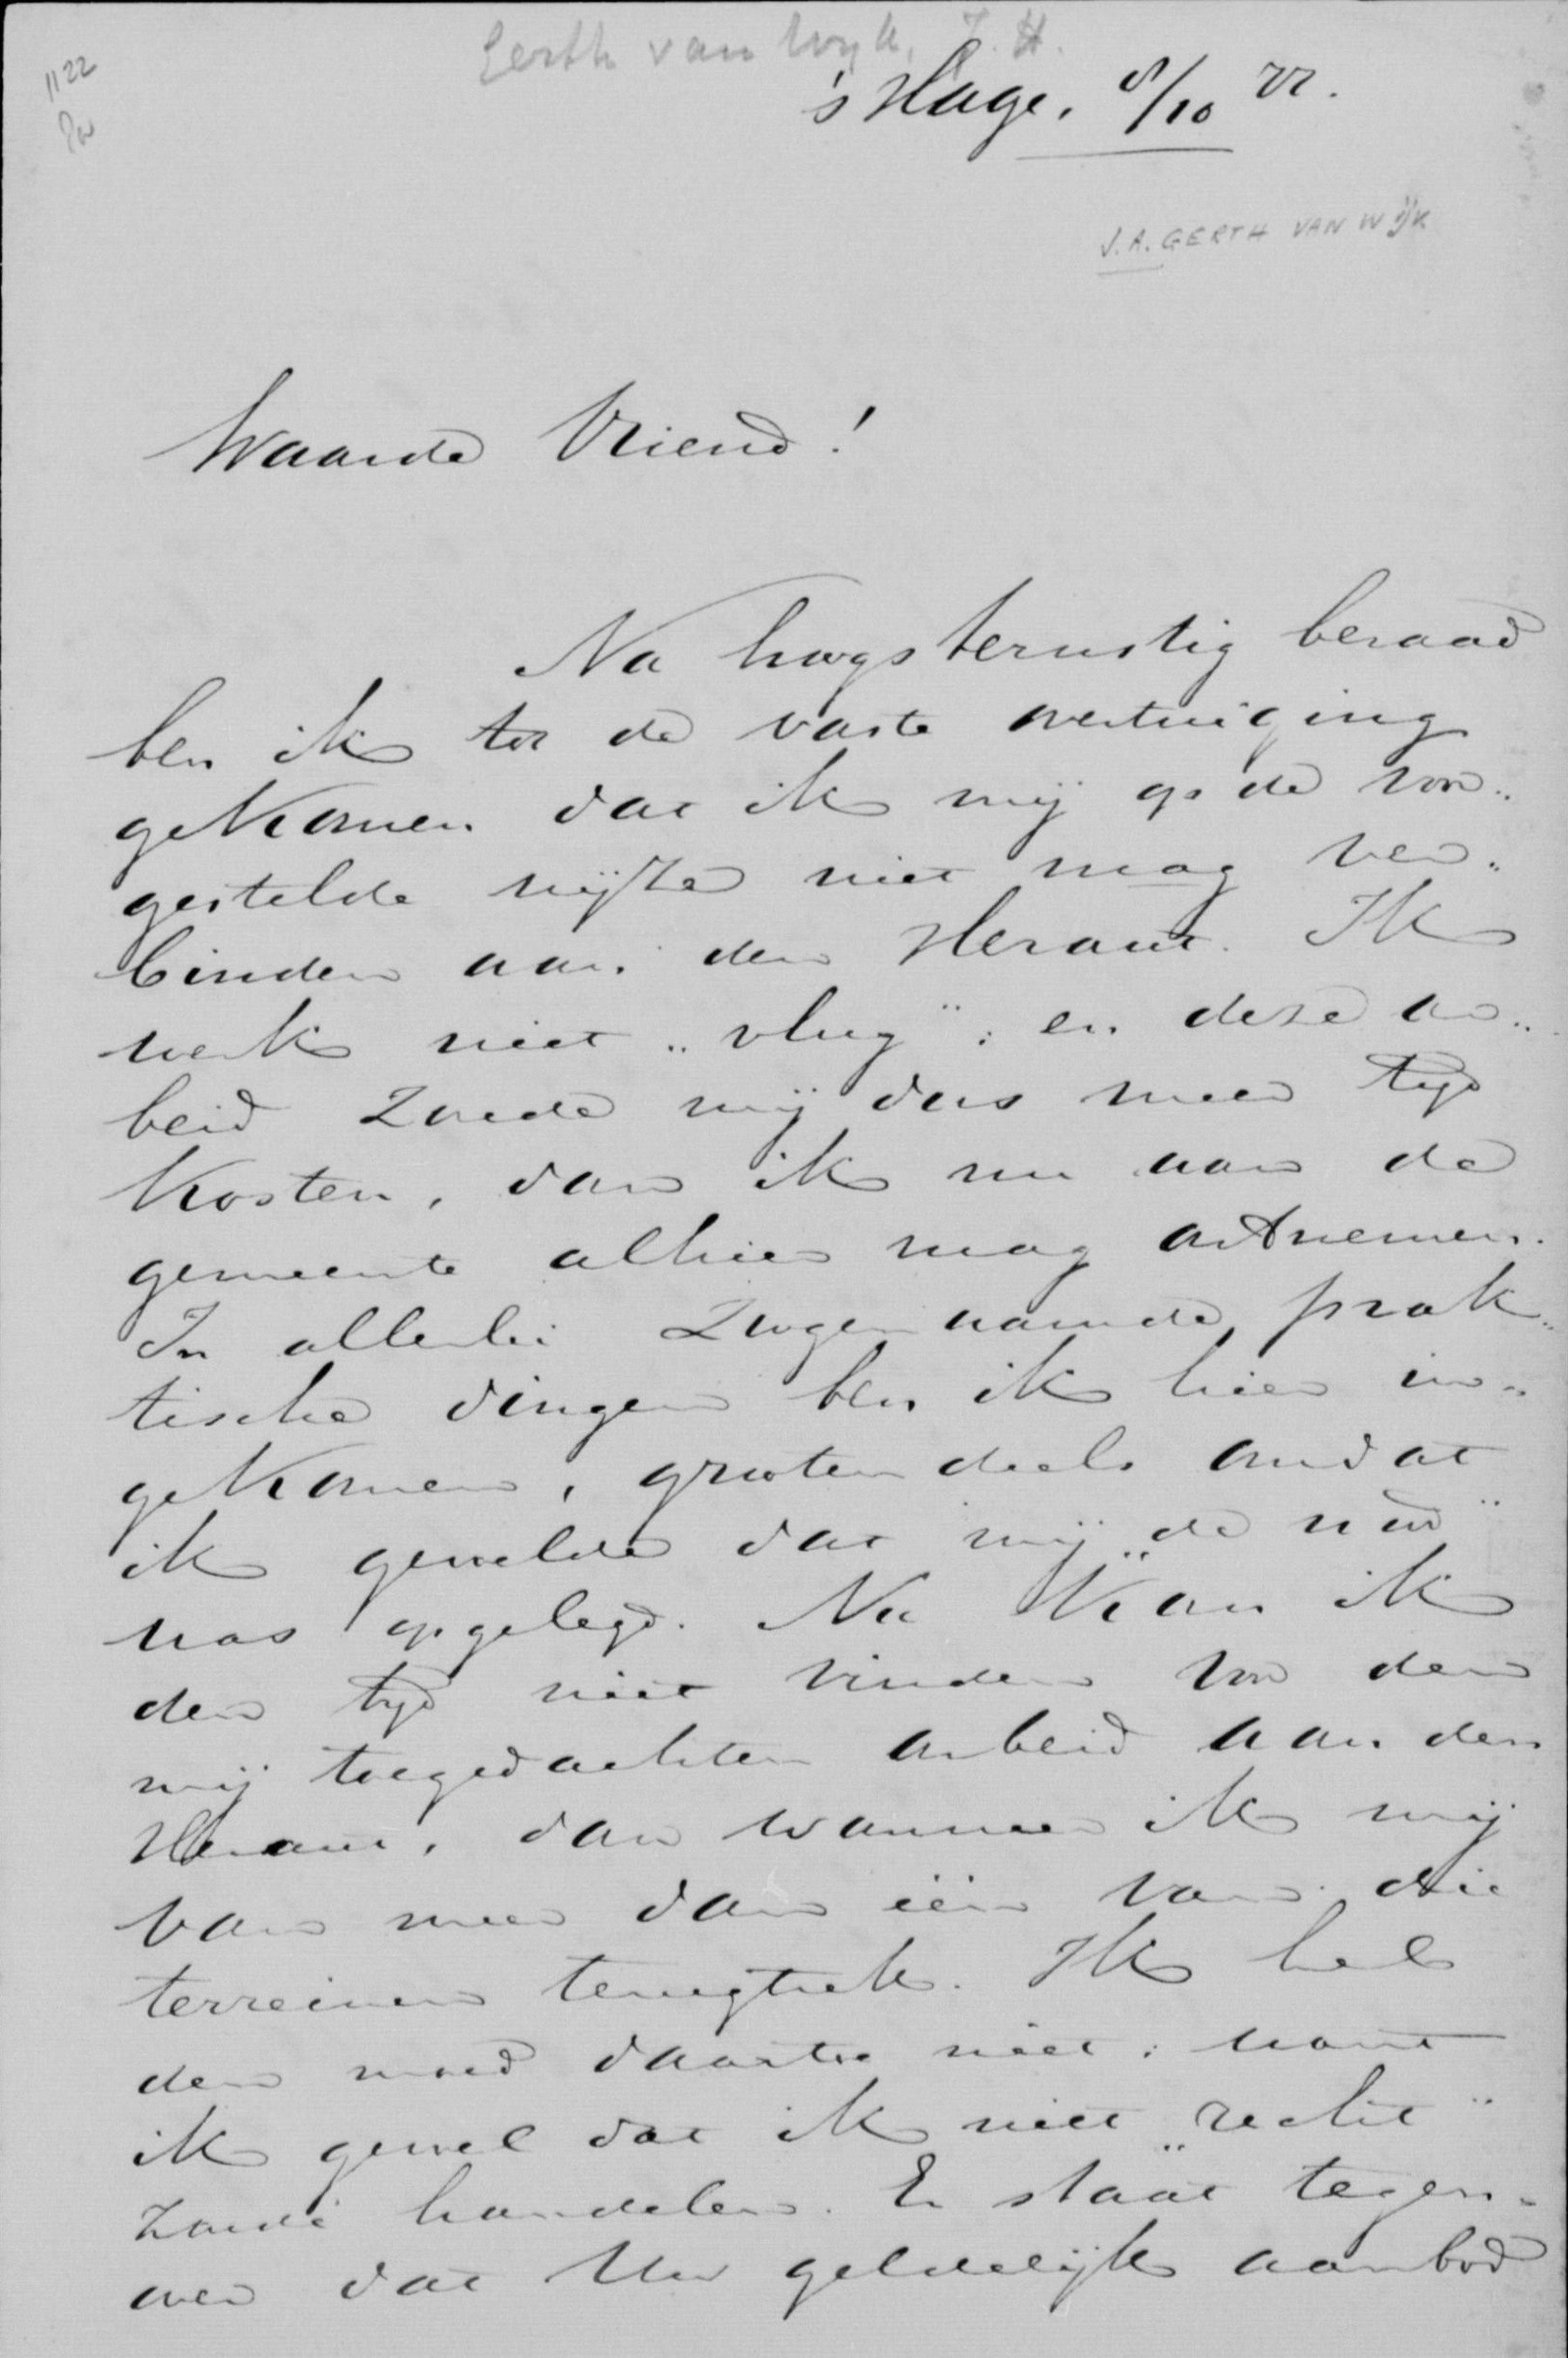 1122
Gerth van Wijk, J.H.
's Hage, 8/10 77.
J.A. GERTH VAN WIJK
Waarde Vriend!
Na hoogsternstig beraad
ben ik tot de vaste overtuiging
gekomen dat ik mij op de voor„
gestelde wijze niet mag ver„
binden aan den Heraut. Ik
werk niet „vlug"; en deze ar„
beid zoude mij dus meer tijd
kosten, dan ik nu aan de
gemeente alhier mag ontnemen.
In allerlei zoogenaamde prak„
tische dingen ben ik hier in„
gekomen, grootendeels omdat
ik gevoelde dat mij „de nood"
was opgelegd. Nu kan ik
den tijd niet vinden voor den
mij toegedachten arbeid aan den
Heraut, dan wanneer ik mij
van meer dan één van die
terreinen terugtrek. Ik heb
den moed daartoe niet; want
ik gevoel dat ik niet „recht"
zoude handelen. Er staat tegen„
over dat Uw geldelijk aanbod